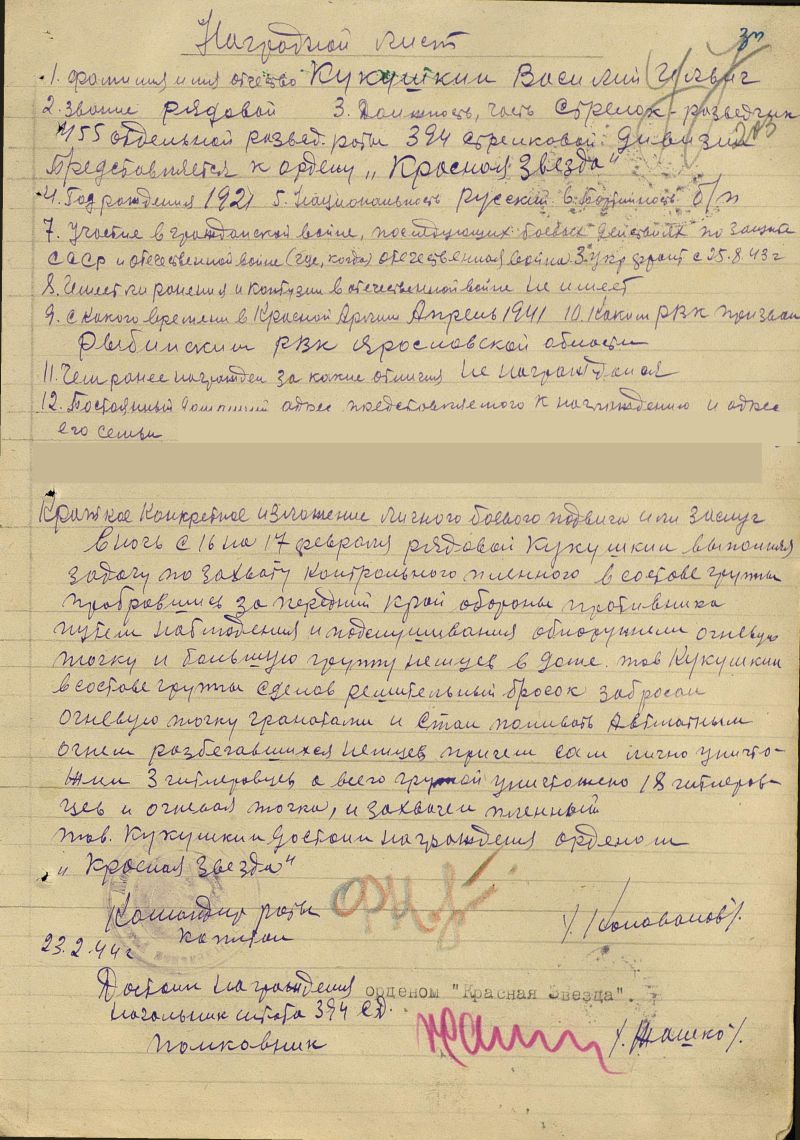 Наградной лист
1. фамилия имя отчество Кукушкин Василий Ильич
2. Звание рядовой 3. Должность, часть стрелок-разведчик
155 отдельной развед. роты 394 стрелковой дивизии
Представляется к ордену „Красная Звезда"
4. Год рождения 1921 5. Национальность Русский 6. Партийность б/п
7. Участие в гражданской войне, последующих боевых действиях по защите
СССР и отечественной войне (где, когда) отечественная война 3 укр фронт с 25.8.43 г
8. Имеет ли ранения и контузии в отечественной войне Не имеет
9. С какого времени в Красной Армии Апрель 1941 10. Каким РВК призван
Рыбинским РВК Ярославской области
11. Чем ранее награжден за какие отличия Не награждался
12. Постоянный домашний адрес представляемого к награждению и адрес
его семьи
Краткое конкретное изложение личного боевого подвига или заслуг
В ночь с 16 на 17 февраля рядовой Кукушкин выполняя
задачу по захвату контрольного пленного в составе группы
пробравшись за передний край обороны противника
путем наблюдения и подслушивания обнаружили огневую
точку и большую группу немцев в доме. тов Кукушкин
в составе группы сделав решительный бросок забросал
огневую точку гранатами и стал поливать автматным
огнем разбегавшихся немцев причем сам лично уничто-
жил 3 гитлеровцев а всего группой уничтожено 18 гитлеров-
цев и огневая точка, и захвачен пленный
тов. Кукушкин достоин награждения орденом
„Красная звезда"
Командир роты
капитан /Коновалов/.
23.2.44 г
Достоин награждения орденом "Красная Звезда".
Начальник штаба 394 СД.
полковник /Жашко/.